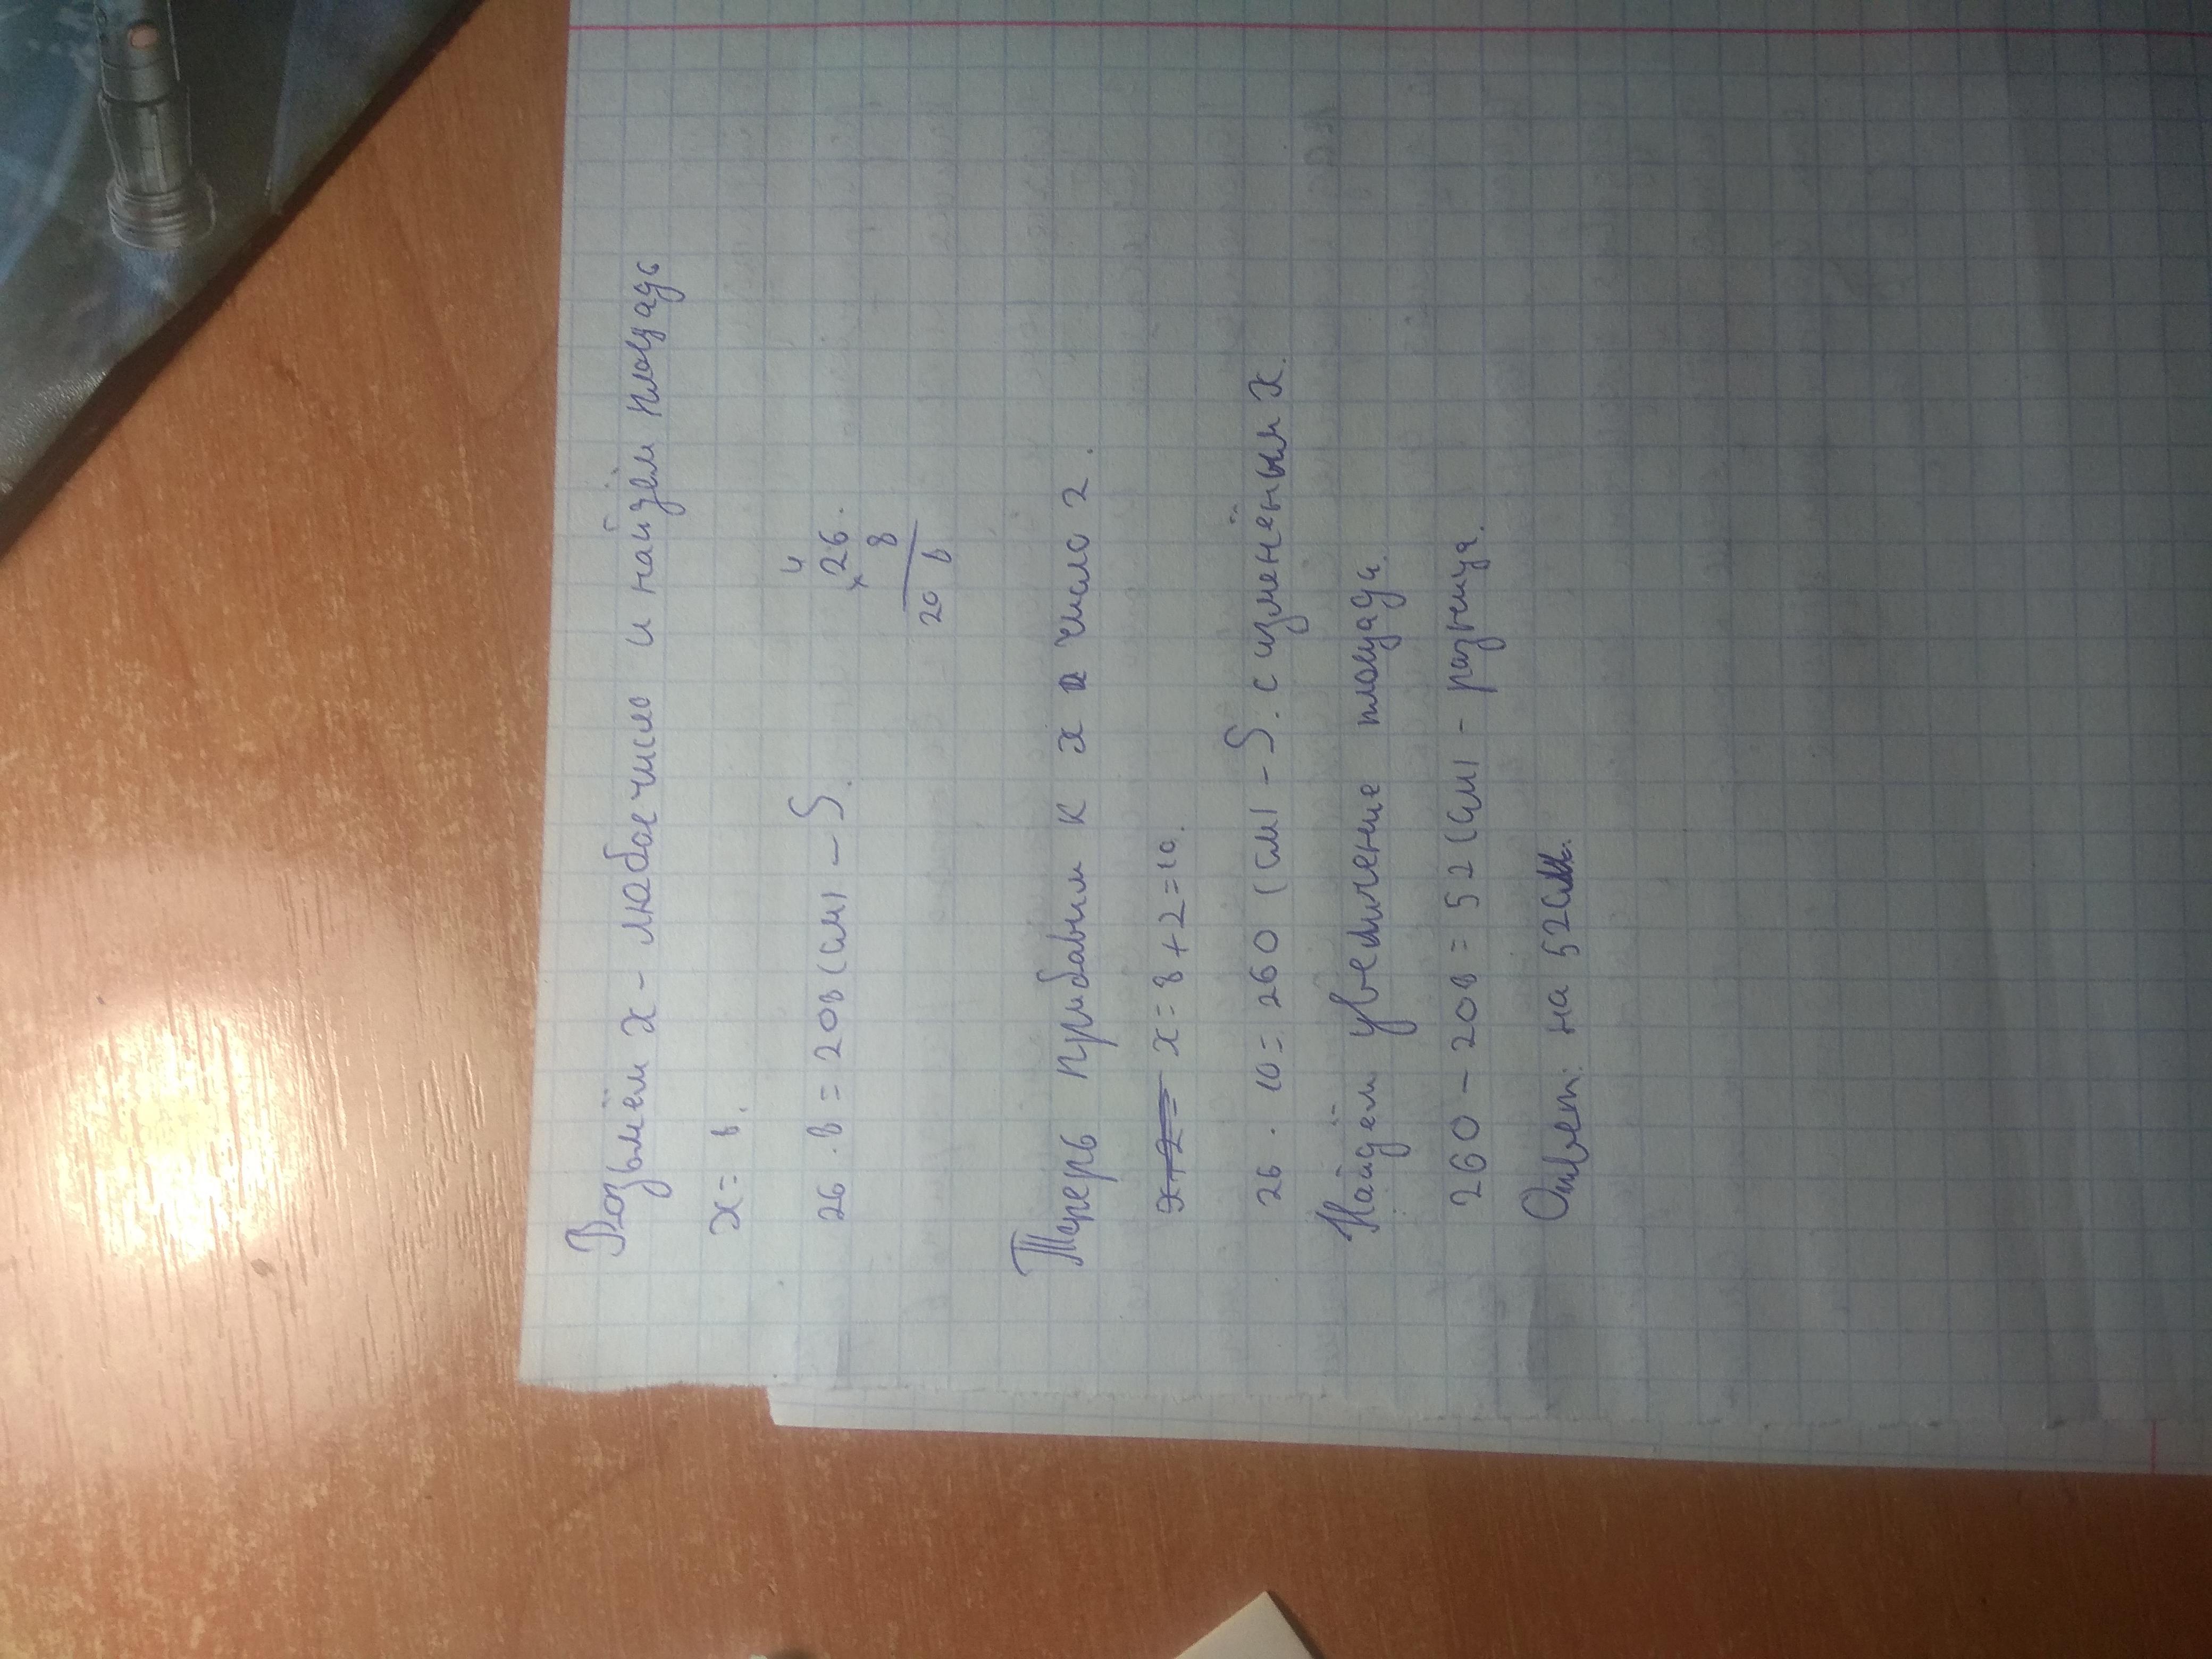 Возьмём х - любое число и найдём площадь
х = 8.
26 · 8 = 208 (см) - S.
4
× 26.
8
20 8
Теперь прибавим к х число 2.
х + 2 = х = 8 + 2 = 10.
26 · 10 = 260 (см) - S. с изменёным х.
Найдём увеличение площади.
260 - 208 = 52 (см) - разница.
Ответ: на 52см.